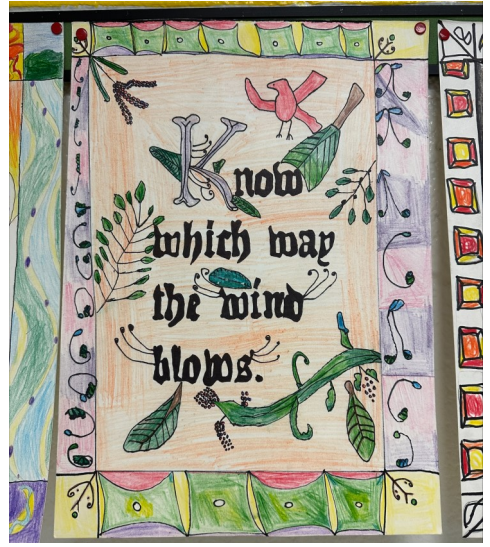 Know
which way
the wind
blows.